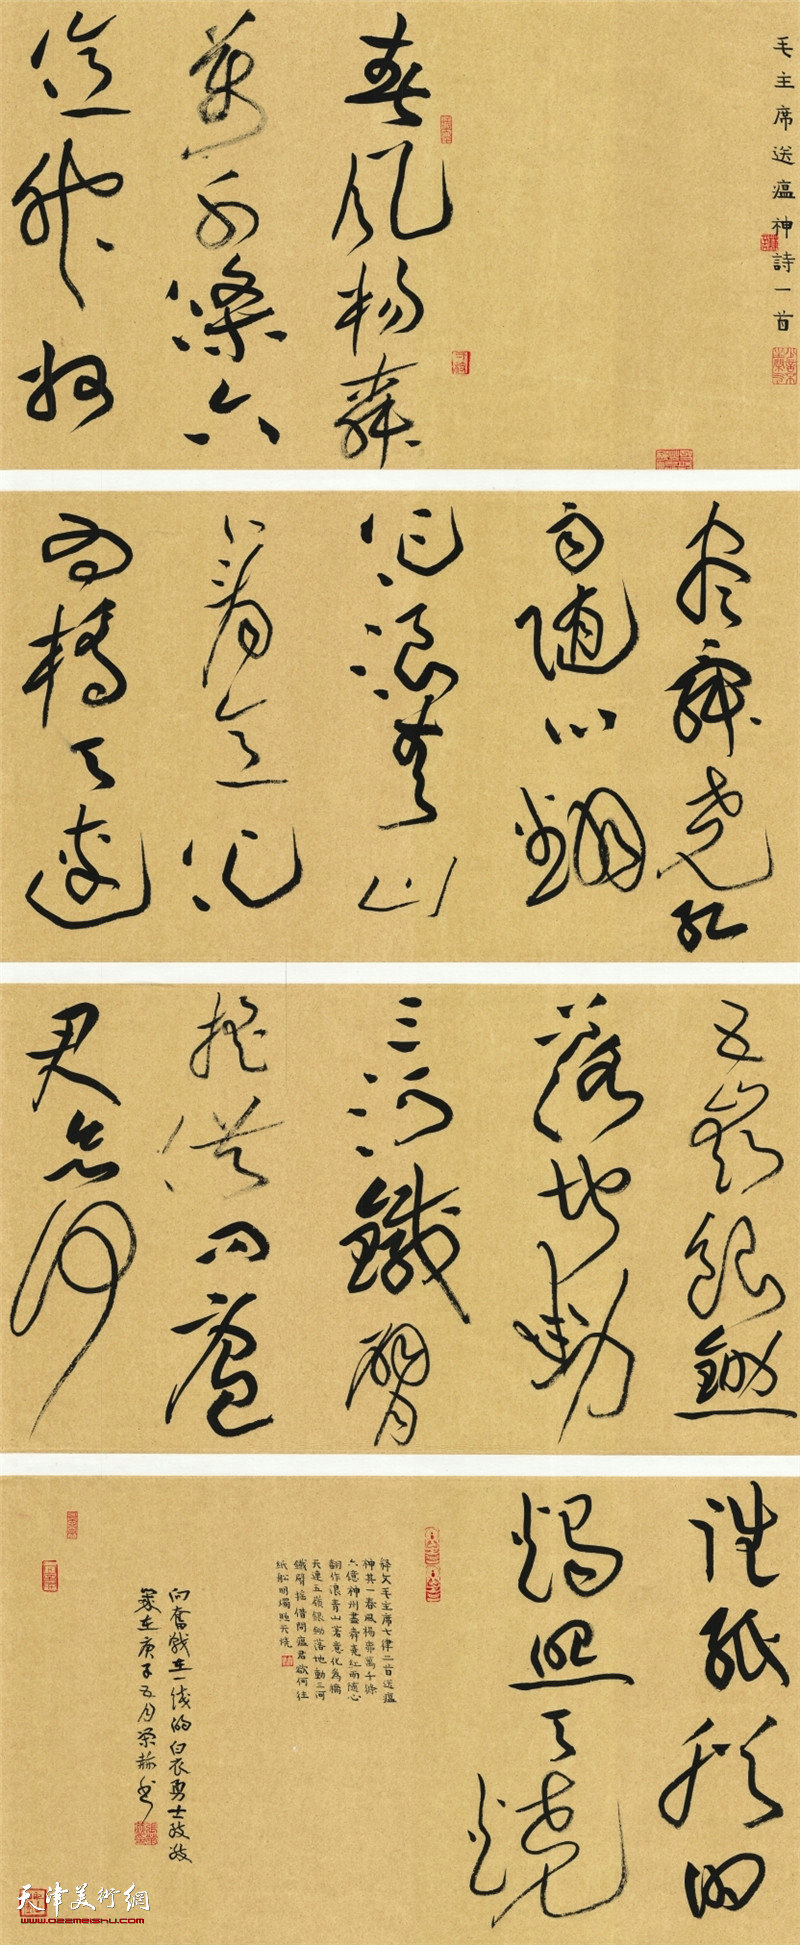 毛主席送瘟神詩一首
春風楊
萬千條六
億神州
盡舜堯紅
雨随心翻
作浪青山
著意化
為橋天連
五嶺銀鋤
落地動
三河鐵臂
摇借問瘟
君欲何
往紙船明
燭照天燒
釋文毛主席七律二首送瘟
神其一春風楊萬千條
六億神州盡舜堯紅雨随心
翻作浪青山著意化為橋
天連五嶺銀鋤落地動三河
鐵臂摇借問瘟君欲何往
紙船明燭照天燒
向奮戰在一线的白衣勇士致敬
歲在庚子五月榮書
天津美術網
www.022meishu.com